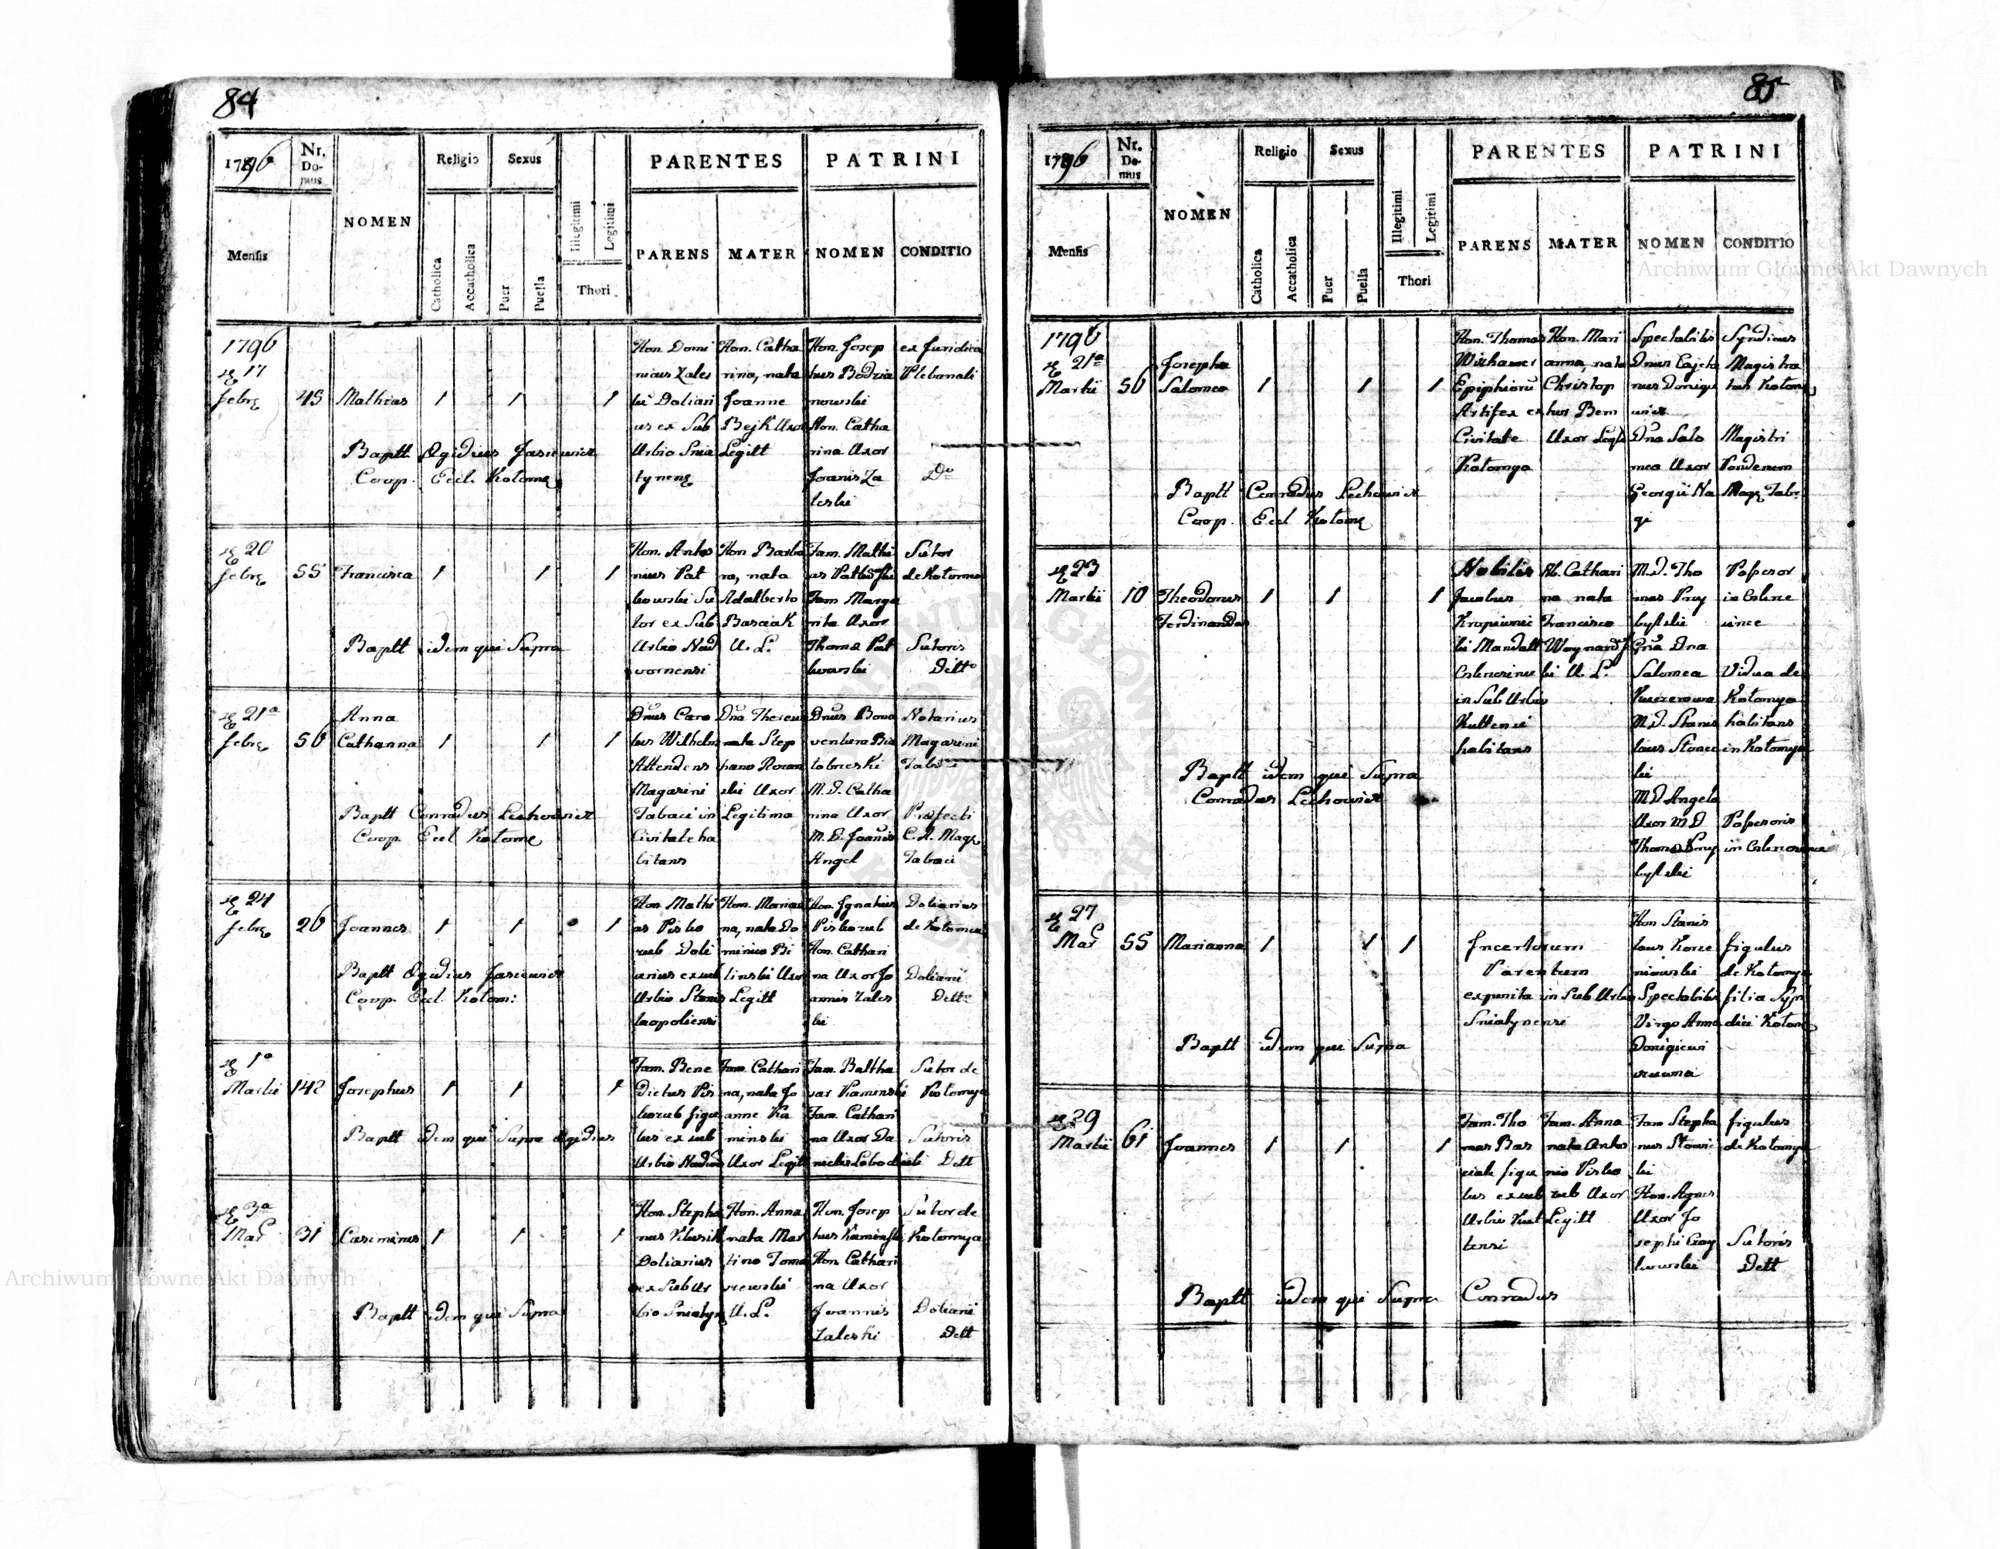 84
1796
Nr. Domus
NOMEN
Religio
Sexus
PARENTES
PATRINI
Mensis
Catholica
Accatholica
Puer
Puella
Illegitimi
Legitimi
Thori
PARENS
MATER
NOMEN
CONDITIO
1796
17
febr
45 Mathias 1 1 1
Baptt Egidius
Coop. Eccl. Kolom
Hon. Domi
nicus Zales
ki Doliari
us ex Sub
Urbio Snia
tynens
Hon. Catha
rina, nata
Joanne
Bejk Uxor
Legitt
Hon. Josep
hus Bodzia
nowski
Hon. Catha
rina Uxor
Joanis Za
leski
ex Juridica
Plebanali
Do
20
febr
55 Francisca 1 1 1
Baptt idem qui Supra
Hon. Anto
nius Pat
kowski Su
tor ex Sub
Urbio Nad
vornensi
Hon Barba
ra, nata
Adalberto
Basciak
U. L.
Fam. Mathi
as Patkoski
Fam Marga
rita Uxor
Thoma Pat
kowski
Sutor
de Kolomea
Sutoris
Detto
21a
febr
56
Anna
Catharina 1 1 1
Baptt Conradus Lechowicz
Coop. Eccl Kolom
Dnus Caro
lus Wilhelm
Attendens
Magazini
Tabaci in
Civitate ha
bitans
Dna Theresia
nata Step
hano Roman
ski Uxor
Legitima
Dnus Bona
ventura Bia
lobreski
M. D. Catha
rina Uxor
M. D. Joannis
Angel
Notarius
Magazini
Tabaci
Præfecti
C. R. Mag
Tabaci
24
febr
26 Joannes 1 1 1
Baptt Egidius
Coop. Eccl. Kolom:
Hon. Mathi
as Pisko
zub Doli
arius ex sub
Urbio Stanis
laopoliensi
Hon. Marian
na, nata Do
minico Bi
linski Uxor
Legitt
Hon. Ignatius
Piskozub
Hon. Cathari
na Uxor Jo
annis Zales
ki
Doliarius
de Kolomea
Doliarii
Detto
1a
Martii 142 Josephus 1 1 1
Baptt idem qui Supra Egidius
Fam. Bene
dictus Pis
kozub figu
lus ex sub
Urbio
Fam. Cathari
na, nata Jo
anne Ka
minski
Uxor Legitt
Fam. Baltha
zar Kaminski
Fam. Cathari
na Uxor Da
nielis
Sutor de
Kolomya
Sutoris
Dett
3a
Mar
31 Casimirus 1 1 1
Baptt idem qui Supra
Hon. Stepha
nus Klusik
Doliarius
ex Sub Ur
bio Sniatyn
Hon. Anna
nata Mar
tino Toma
szewski
U. L.
Hon. Josep
hus Kaminski
Hon Cathari
na Uxor
Joannis
Zaleski
Sutor de
Kolomya
Doliarii
Dett
85
1796
Nr. Domus
NOMEN
Religio
Sexus
PARENTES
PATRINI
Mensis
Catholica
Accatholica
Puer
Puella
Illegitimi
Legitimi
Thori
PARENS
MATER
NOMEN
CONDITIO
1796
21a
Martii 56
Josepha
Salomea 1 1 1
Baptt Conradus Lechowicz
Coop. Eccl Kolom
Hon. Thomas
Epiphiorum
Artifex ex
Civitate
Kolomya
Hon. Mari
anna, nata
Christop
hor Bem
Uxor Legit
Spectabilis
Dnus Cajeta
nus Donigie
wicz
Dna Salo
mea Uxor
Georgii Na
gi
Syndicus
Magistra
tus Kolom
Magistri
Ponderum
Mag Tab
23
Martii 10 Theodorus 1 1 1
Ferdinandus
Baptt idem qui Supra
Conradus Lechowicz
Nobilis
Jacobus
Krapiwnic
ki Mandatt
in Sub Urbio
Kuttensi
habitans
N. Cathari
na nata
Francisco
ki U. L.
M. D. Tho
mas Przy
bylski
Gna Dna
Salomea
M. D. Stanis
laus Stonec
ki
M D Angela
Uxor M D
Thoma Przy
bylski
Possesor
in
Vidua de
Kolomya
habitans
in Kolomya
Possesoris
in
27
Mar
55 Marianna 1 1 1
Baptt idem qui Supra
Incertorum
Parentum
exposita in Sub Urbio
Sniatynensi
Hon Stanis
laus Korze
niowski
Spectabilis
Virgo Anna
Donigiewi
czowna
figulus
de Kolomya
filia Syn
dici Kolom
29
Martii 61 Joannes 1 1 1
Baptt idem qui Supra Conradus
Fam. Tho
mas Bas
ciak figu
lus ex sub
Urbio Kut
tensi
Fam. Anna
nata Anto
nio Pisko
zub Uxor
Legitt
Fam Stepha
nus Slowic
ki
Hon. Agnes
Uxor Jo
sephi Czay
kowski
figulus
de Kolomya
Sutoris
Dett
Archiwum Główne Akt Dawnych
Archiwum Główne Akt Dawnych